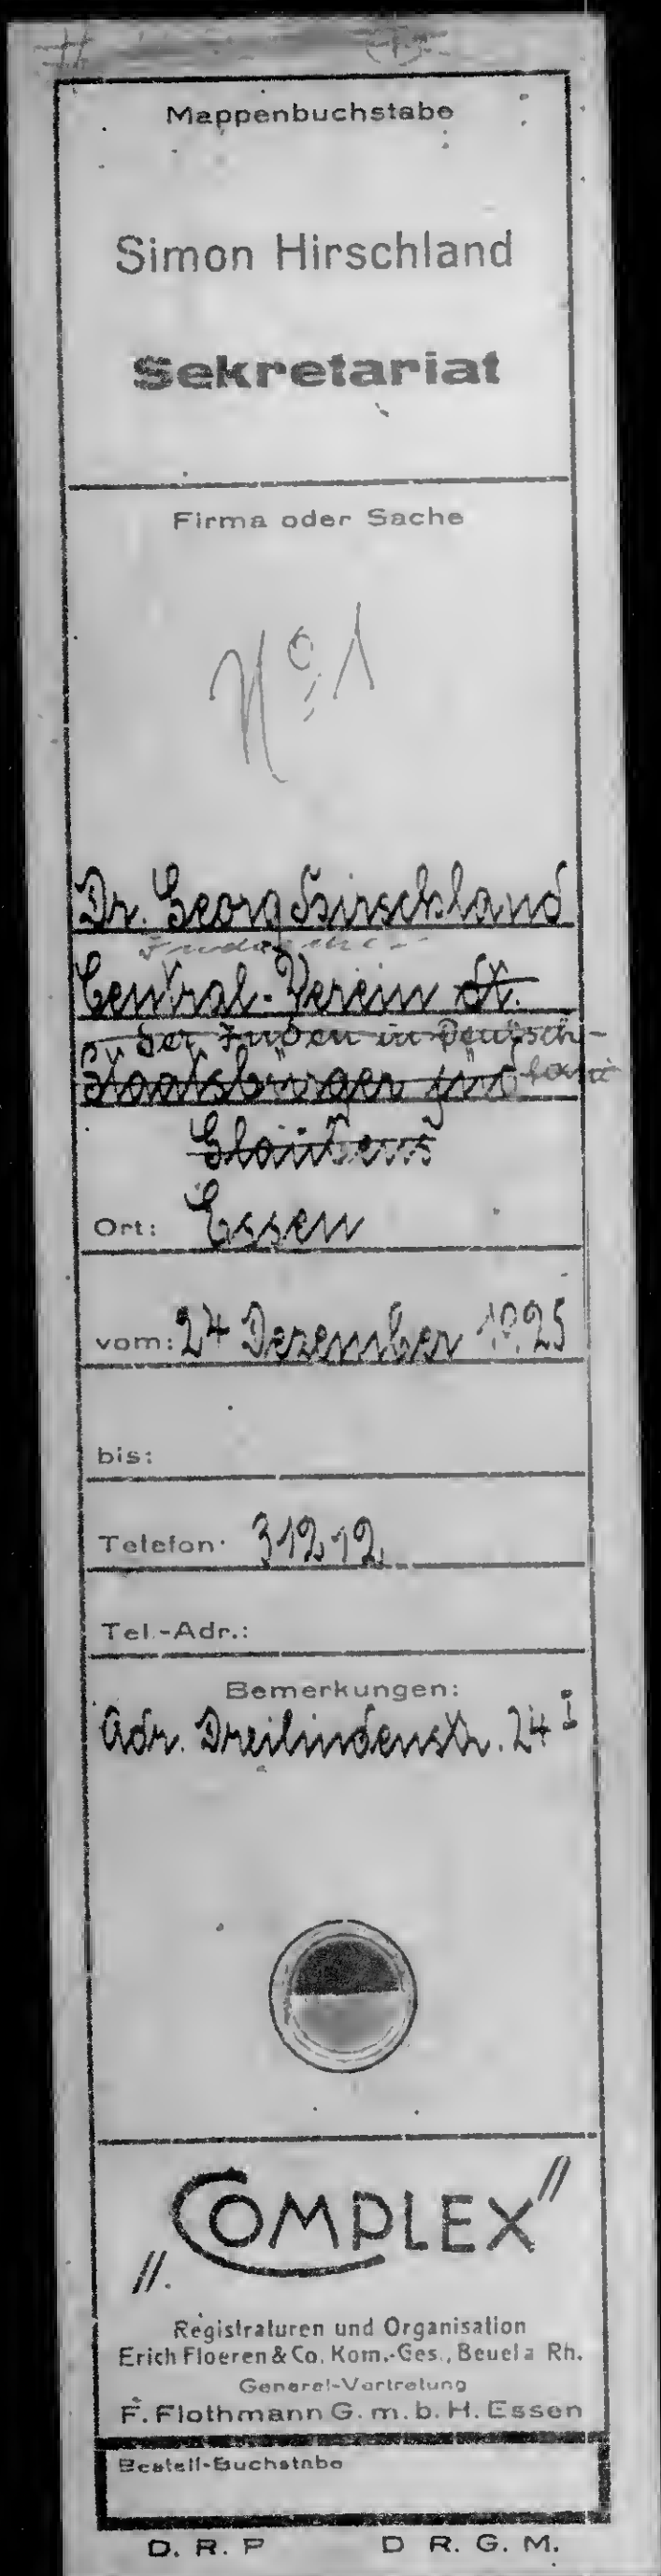 Mappenbuchstabe
Simon Hirschland
Sekretariat
Firma oder Sache
No. 1
Dr. Georg Hirschland
Central-Verein dt.
der Juden in Deutsch-
Staatsbürger jüd land
Glaubens
Ort: Essen
vom: 24 Dezember 1925
bis:
Telefon: 31212
Tel.-Adr.:
Bemerkungen:
Adr. Dreilindenstr. 24 I
„COMPLEX"
Registraturen und Organisation
Erich Floeren & Co. Kom.-Ges., Beuel a Rh.
General-Vertretung
F. Flothmann G. m. b. H. Essen
Bestell-Buchstabe
D. R. P D R. G. M.